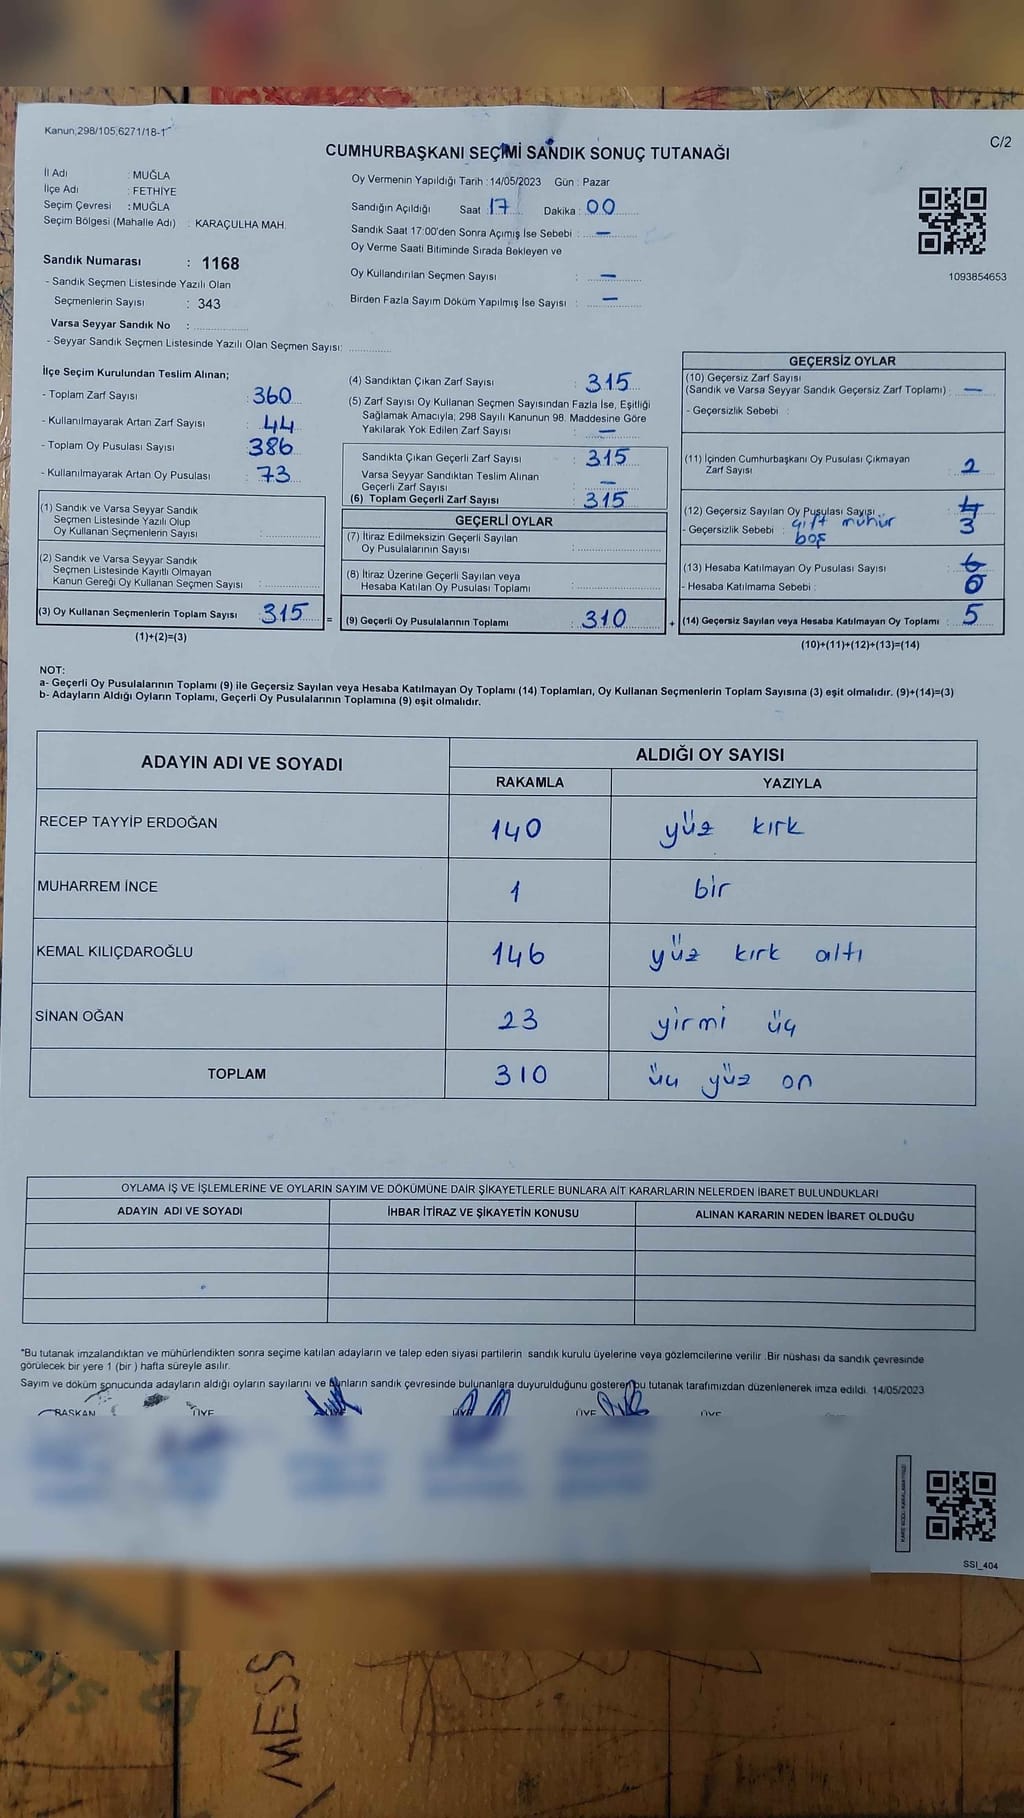 Kanun,298/105,6271/18-1
C/2
CUMHURBAŞKANI SEÇİMİ SANDIK SONUÇ TUTANAĞI
İl Adı : MUĞLA
İlçe Adı : FETHİYE
Seçim Çevresi : MUĞLA
Seçim Bölgesi (Mahalle Adı) : KARAÇULHA MAH.
Sandık Numarası : 1168
- Sandık Seçmen Listesinde Yazılı Olan
Seçmenlerin Sayısı : 343
Varsa Seyyar Sandık No :
- Seyyar Sandık Seçmen Listesinde Yazılı Olan Seçmen Sayısı:
Oy Vermenin Yapıldığı Tarih : 14/05/2023 Gün : Pazar
Sandığın Açıldığı Saat 17 Dakika : 00
Sandık Saat 17:00'den Sonra Açımış İse Sebebi : —
Oy Verme Saati Bitiminde Sırada Bekleyen ve
Oy Kullandırılan Seçmen Sayısı : —
Birden Fazla Sayım Döküm Yapılmış İse Sayısı : —
1093854653
İlçe Seçim Kurulundan Teslim Alınan;
- Toplam Zarf Sayısı : 360
- Kullanılmayarak Artan Zarf Sayısı : 44
- Toplam Oy Pusulası Sayısı : 386
- Kullanılmayarak Artan Oy Pusulası : 73
(1) Sandık ve Varsa Seyyar Sandık
Seçmen Listesinde Yazılı Olup
Oy Kullanan Seçmenlerin Sayısı :
(2) Sandık ve Varsa Seyyar Sandık
Seçmen Listesinde Kayıtlı Olmayan
Kanun Gereği Oy Kullanan Seçmen Sayısı :
(3) Oy Kullanan Seçmenlerin Toplam Sayısı : 315 =
(1)+(2)=(3)
(4) Sandıktan Çıkan Zarf Sayısı : 315
(5) Zarf Sayısı Oy Kullanan Seçmen Sayısından Fazla İse, Eşitliği
Sağlamak Amacıyla, 298 Sayılı Kanunun 98. Maddesine Göre
Yakılarak Yok Edilen Zarf Sayısı : —
Sandıkta Çıkan Geçerli Zarf Sayısı : 315
Varsa Seyyar Sandıktan Teslim Alınan
Geçerli Zarf Sayısı : —
(6) Toplam Geçerli Zarf Sayısı : 315
GEÇERLİ OYLAR
(7) İtiraz Edilmeksizin Geçerli Sayılan
Oy Pusulalarının Sayısı :
(8) İtiraz Üzerine Geçerli Sayılan veya
Hesaba Katılan Oy Pusulası Toplamı :
(9) Geçerli Oy Pusulalarının Toplamı : 310 +
GEÇERSİZ OYLAR
(10) Geçersiz Zarf Sayısı
(Sandık ve Varsa Seyyar Sandık Geçersiz Zarf Toplamı) : —
- Geçersizlik Sebebi :
(11) İçinden Cumhurbaşkanı Oy Pusulası Çıkmayan
Zarf Sayısı : 2
(12) Geçersiz Sayılan Oy Pusulası Sayısı : 4
- Geçersizlik Sebebi : çift mühür 3
boş
(13) Hesaba Katılmayan Oy Pusulası Sayısı : 6
- Hesaba Katılmama Sebebi : 0
(14) Geçersiz Sayılan veya Hesaba Katılmayan Oy Toplamı : 5
(10)+(11)+(12)+(13)=(14)
NOT:
a- Geçerli Oy Pusulalarının Toplamı (9) ile Geçersiz Sayılan veya Hesaba Katılmayan Oy Toplamı (14) Toplamları, Oy Kullanan Seçmenlerin Toplam Sayısına (3) eşit olmalıdır. (9)+(14)=(3)
b- Adayların Aldığı Oyların Toplamı, Geçerli Oy Pusulalarının Toplamına (9) eşit olmalıdır.
ADAYIN ADI VE SOYADI ALDIĞI OY SAYISI
RAKAMLA YAZIYLA
RECEP TAYYİP ERDOĞAN 140 yüz kırk
MUHARREM İNCE 1 bir
KEMAL KILIÇDAROĞLU 146 yüz kırk altı
SİNAN OĞAN 23 yirmi üç
TOPLAM 310 üç yüz on
OYLAMA İŞ VE İŞLEMLERİNE VE OYLARIN SAYIM VE DÖKÜMÜNE DAİR ŞİKAYETLERLE BUNLARA AİT KARARLARIN NELERDEN İBARET BULUNDUKLARI
ADAYIN ADI VE SOYADI İHBAR İTİRAZ VE ŞİKAYETİN KONUSU ALINAN KARARIN NEDEN İBARET OLDUĞU
*Bu tutanak imzalandıktan ve mühürlendikten sonra seçime katılan adayların ve talep eden siyasi partilerin sandık kurulu üyelerine veya gözlemcilerine verilir. Bir nüshası da sandık çevresinde
görülecek bir yere 1 (bir ) hafta süreyle asılır.
Sayım ve döküm sonucunda adayların aldığı oyların sayılarını ve bunların sandık çevresinde bulunanlara duyurulduğunu gösteren bu tutanak tarafımızdan düzenlenerek imza edildi. 14/05/2023
BAŞKAN ÜYE ÜYE ÜYE ÜYE
SSI_404
MESS